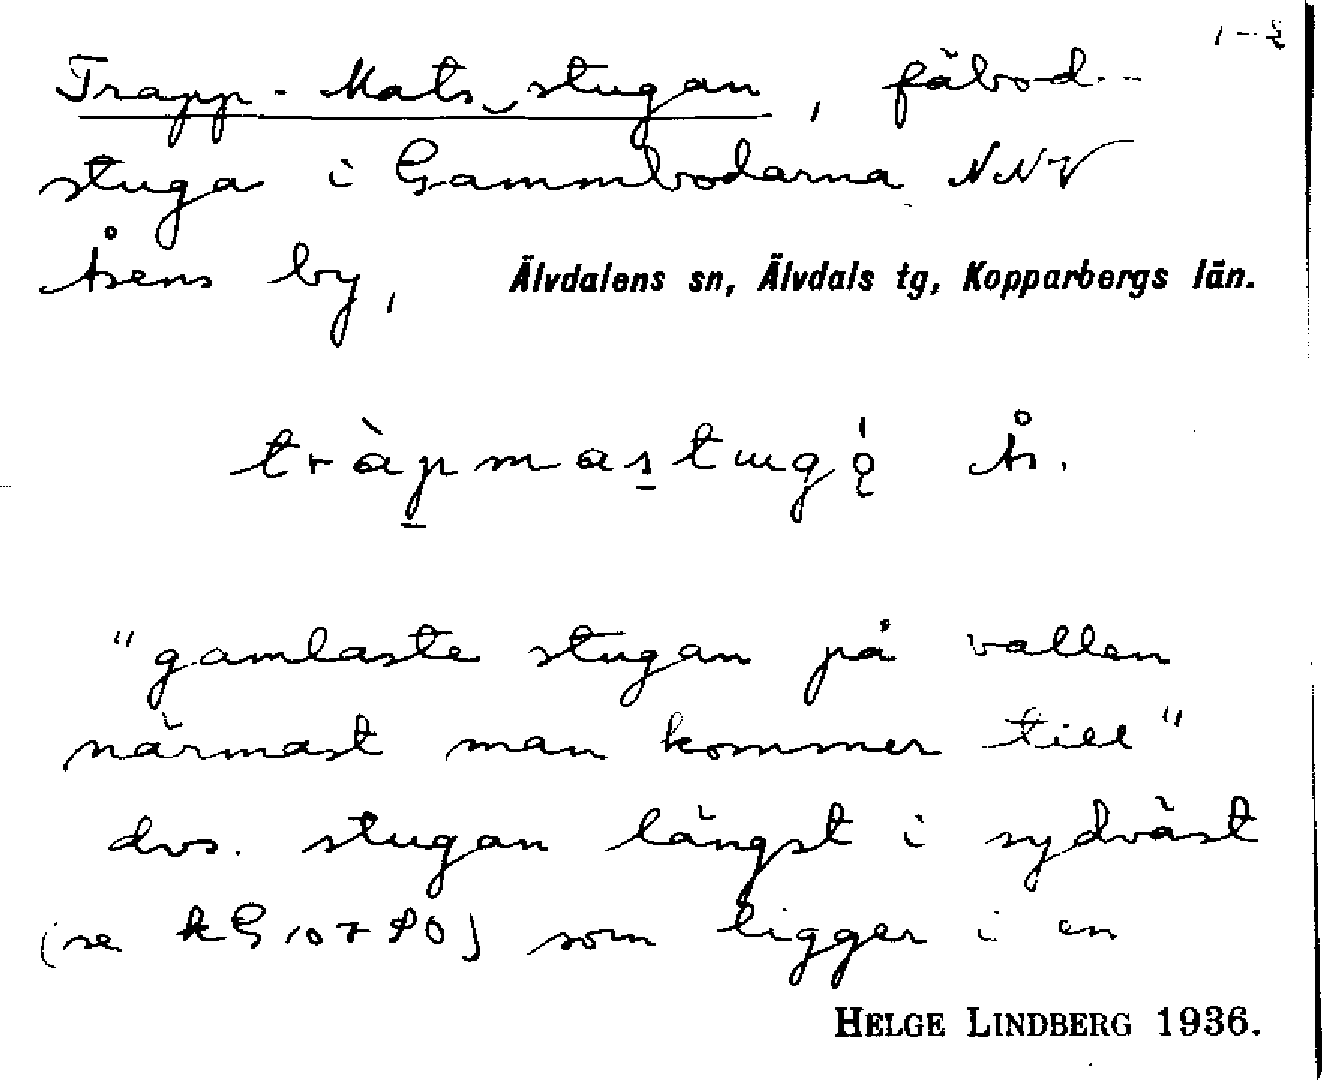 1-2
Trapp-Mats stugan, fäbod-
stuga i Gammbodarna NNV
Åsens by, Älvdalens sn, Älvdals tg, Kopparbergs län.
Ås.
"gamlaste stugan på vallen
närmast man kommer till"
dvs. stugan längst i sydväst
(se som ligger i en
HELGE LINDBERG 1936.